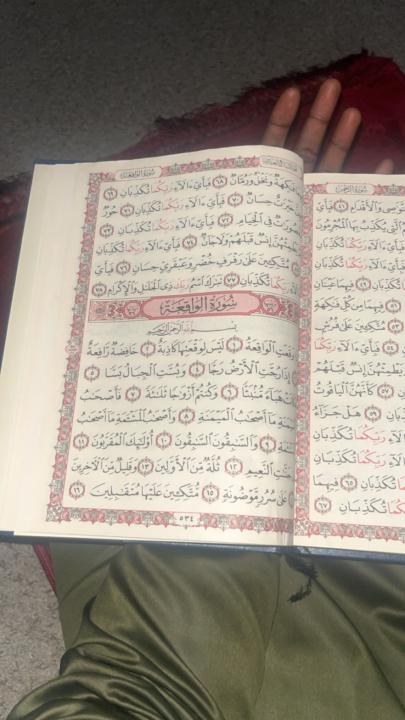 سُورَةُ الرَّحْمٰن
وَٱلْأَقْدَامِ ٤١ فَبِأَيِّ
ٱلَّتِي يُكَذِّبُ بِهَا ٱلْمُجْرِمُونَ
فَبِأَيِّ ءَالَآءِ رَبِّكُمَا تُكَذِّبَانِ
فَبِأَيِّ ءَالَآءِ رَبِّكُمَا تُكَذِّبَانِ
تُكَذِّبَانِ ٤٩ فِيهِمَا عَيْنَانِ
٥١ فِيهِمَا مِن كُلِّ فَٰكِهَةٍ
٥٣ مُتَّكِـِٔينَ عَلَىٰ فُرُشٍ
ءَالَآءِ رَبِّكُمَا
يَطْمِثْهُنَّ إِنسٌ قَبْلَهُمْ
٥٧ كَأَنَّهُنَّ ٱلْيَاقُوتُ
٥٩ هَلْ جَزَآءُ
رَبِّكُمَا تُكَذِّبَانِ
رَبِّكُمَا تُكَذِّبَانِ
تُكَذِّبَانِ ٦٥ فِيهِمَا
رَبِّكُمَا تُكَذِّبَانِ ٦٧
سُورَةُ الوَاقِعَة
فَٰكِهَةٌ وَنَخْلٌ وَرُمَّانٌ ٦٨ فَبِأَيِّ ءَالَآءِ رَبِّكُمَا تُكَذِّبَانِ ٦٩
خَيْرَٰتٌ حِسَانٌ ٧٠ فَبِأَيِّ ءَالَآءِ رَبِّكُمَا تُكَذِّبَانِ ٧١ حُورٌ
مَّقْصُورَٰتٌ فِي ٱلْخِيَامِ ٧٢ فَبِأَيِّ ءَالَآءِ رَبِّكُمَا تُكَذِّبَانِ ٧٣
يَطْمِثْهُنَّ إِنسٌ قَبْلَهُمْ وَلَا جَآنٌّ ٧٤ فَبِأَيِّ ءَالَآءِ رَبِّكُمَا تُكَذِّبَانِ
مُتَّكِـِٔينَ عَلَىٰ رَفْرَفٍ خُضْرٍ وَعَبْقَرِيٍّ حِسَانٍ ٧٦ فَبِأَيِّ
رَبِّكُمَا تُكَذِّبَانِ ٧٧ تَبَٰرَكَ ٱسْمُ رَبِّكَ ذِي ٱلْجَلَٰلِ وَٱلْإِكْرَامِ ٧٨
سُورَةُ الوَاقِعَة
بِسْمِ ٱللَّهِ ٱلرَّحْمَٰنِ ٱلرَّحِيمِ
وَقَعَتِ ٱلْوَاقِعَةُ ١ لَيْسَ لِوَقْعَتِهَا كَاذِبَةٌ ٢ خَافِضَةٌ رَّافِعَةٌ
٣ إِذَا رُجَّتِ ٱلْأَرْضُ رَجًّا ٤ وَبُسَّتِ ٱلْجِبَالُ بَسًّا ٥
هَبَآءً مُّنۢبَثًّا ٦ وَكُنتُمْ أَزْوَٰجًا ثَلَٰثَةً ٧ فَأَصْحَٰبُ
ٱلْمَيْمَنَةِ مَآ أَصْحَٰبُ ٱلْمَيْمَنَةِ ٨ وَأَصْحَٰبُ ٱلْمَشْـَٔمَةِ مَآ أَصْحَٰبُ
ٱلْمَشْـَٔمَةِ ٩ وَٱلسَّٰبِقُونَ ٱلسَّٰبِقُونَ ١٠ أُو۟لَٰٓئِكَ ٱلْمُقَرَّبُونَ ١١
جَنَّٰتِ ٱلنَّعِيمِ ١٢ ثُلَّةٌ مِّنَ ٱلْأَوَّلِينَ ١٣ وَقَلِيلٌ مِّنَ ٱلْـَٔاخِرِينَ
عَلَىٰ سُرُرٍ مَّوْضُونَةٍ ١٥ مُّتَّكِـِٔينَ عَلَيْهَا مُتَقَٰبِلِينَ ١٦
٥٣٤